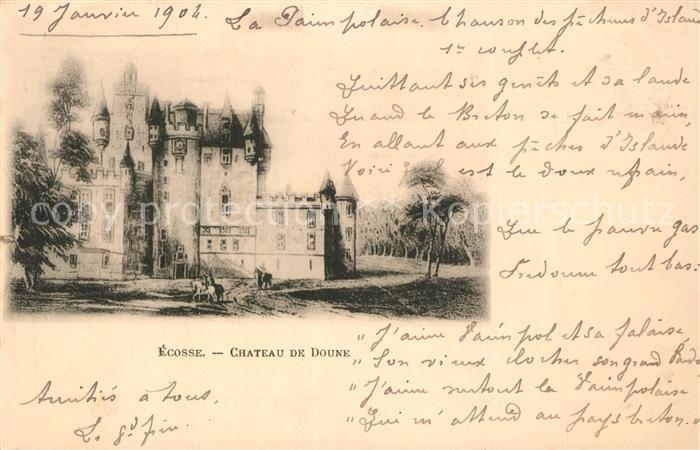 19 Janvier 1902.
La Paimpolaise, Chanson des pêcheurs d'Island
1er couplet.
Quittant ses genêts et sa lande
Quand le Breton se fait marin,
En allant aux pêches d'Islande
Voici quel est le doux refrain,
Que le pauvre gas
Fredonne tout bas:
"J'aime Paimpol et sa falaise,
"Son vieux clocher son grand Pardon
"J'aime surtout la Paimpolaise
"Qui m'attend au pays breton."
ÉCOSSE. — CHATEAU DE DOUNE
Amitiés à tous,
copyright protection *** Bilderkopierschutz